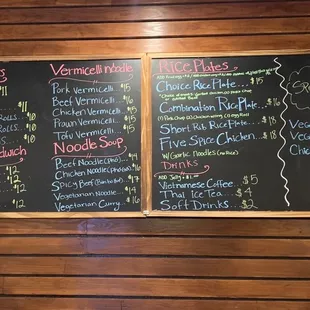 $11
$10
Rolls..$10
Rolls..$10
ndwich
$12
$12
$12
$12
Vermicelli noodle
Pork Vermicelli $15
Beef Vermicelli $16
Chicken Vermicelli $15
Prawn Vermicelli $15
Tofu Vermicelli $15
Noodle Soup
Beef Noodle $14
Chicken Noodle $14
Spicy Beef $16
Vegetarian Noodle $14
Vegetarian Curry $16
Rice Plates
Choice Rice Plate $15
Combination Rice Plate $16
(1) Pork Chop (1) Chicken (1) Egg Roll
Short Rib Rice Plate $18
Five Spice Chicken $18
W/ Garlic Noodles (no Rice)
Drinks
Add Jelly $1
Vietnamese Coffee $5
Thai Ice Tea $4
Soft Drinks $2
Veg
Veg
Chic